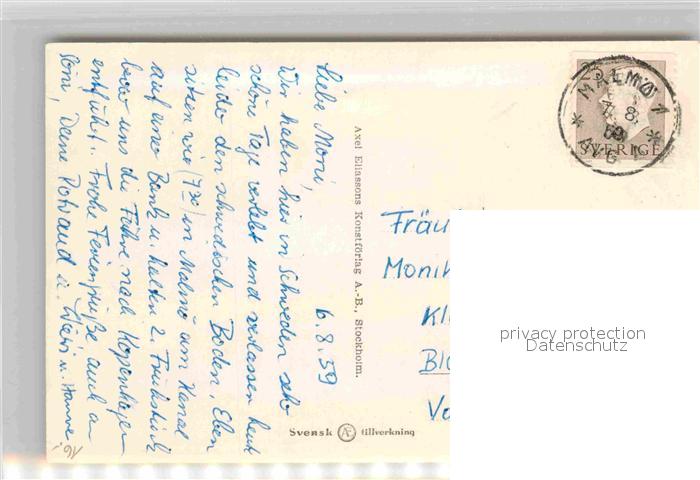 Liebe Moni,
6.8.59
Wir haben hier in Schweden sehr
schöne Tage verlebt und verlassen heute
leider den schwedischen Boden. Eben
sitzen wir (7³⁰) in Malmö am Kanal
auf einer Bank u. halten 2. Frühstück
bevor uns die Fähre nach Kopenhagen
entführt. Frohe Feriengrüße auch an
Deine Rotraud u.
Axel Eliassons Konstförlag A.-B., Stockholm.
Svensk AE tillverkning
MALMÖ 1
SVERIGE
Fräu
Monik
Kl
Bl
Vo
privacy protection
Datenschutz